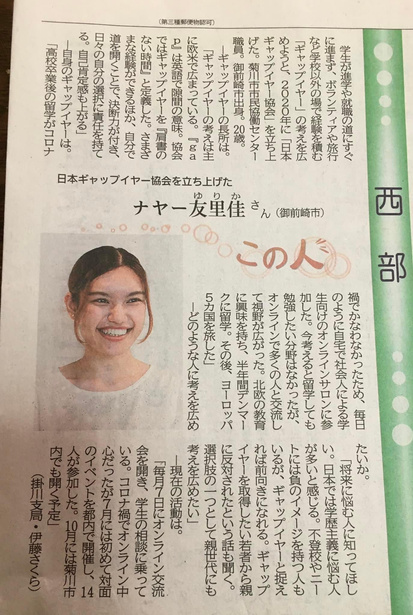 (第三種郵便物認可)
西部
学生が進学や就職の道にすぐ
に進まず、ボランティアや旅行
など学校以外の場で経験を積む
「ギャップイヤー」の考えを広
めようと、2020年に「日本
ギャップイヤー協会」を立ち上
げた。菊川市市民協働センター
職員。御前崎市出身。20歳。
―ギャップイヤーの長所は。
「ギャップイヤーの考えは主
に欧米で広まっている。『ga
p』は英語で隙間の意味。協会
ではギャップイヤーを『肩書の
ない時間』と定義した。さまざ
まな経験ができるほか、自分で
道を開くことで、決断力が付き、
日々の自分の選択に責任を持て
る。自己肯定感も上がる」
―自身のギャップイヤーは。
「高校卒業後の留学がコロナ
日本ギャップイヤー協会を立ち上げた
ナヤー友里佳さん(御前崎市)
ゆりか
この人
禍でかなわなかったため、毎日
のように自宅で社会人による学
生向けのオンラインサロンに参
加した。今考えると留学しても
勉強したい分野はなかったが、
オンラインで多くの人と交流し
て視野が広がった。北欧の教育
に興味を持ち、半年間デンマー
クに留学。その後、ヨーロッパ
5カ国を旅した」
―どのような人に考えを広め
たいか。
「将来に悩む人に知ってほし
い。日本では学歴主義に悩む人
が多いと感じる。不登校やニー
トには負のイメージを持つ人も
いるが、ギャップイヤーと捉え
れば前向きになれる。ギャップ
イヤーを取得したい若者から親
に反対されたという話も聞く。
選択肢の一つとして親世代にも
考えを広めたい」
―現在の活動は。
「毎月7日にオンライン交流
会を開き、学生の相談に乗って
いる。コロナ禍でオンライン中
心だったが7月には初めて対面
のイベントを都内で開催し、14
人が参加した。10月には菊川市
内でも開く予定」
(掛川支局・伊藤さくら)